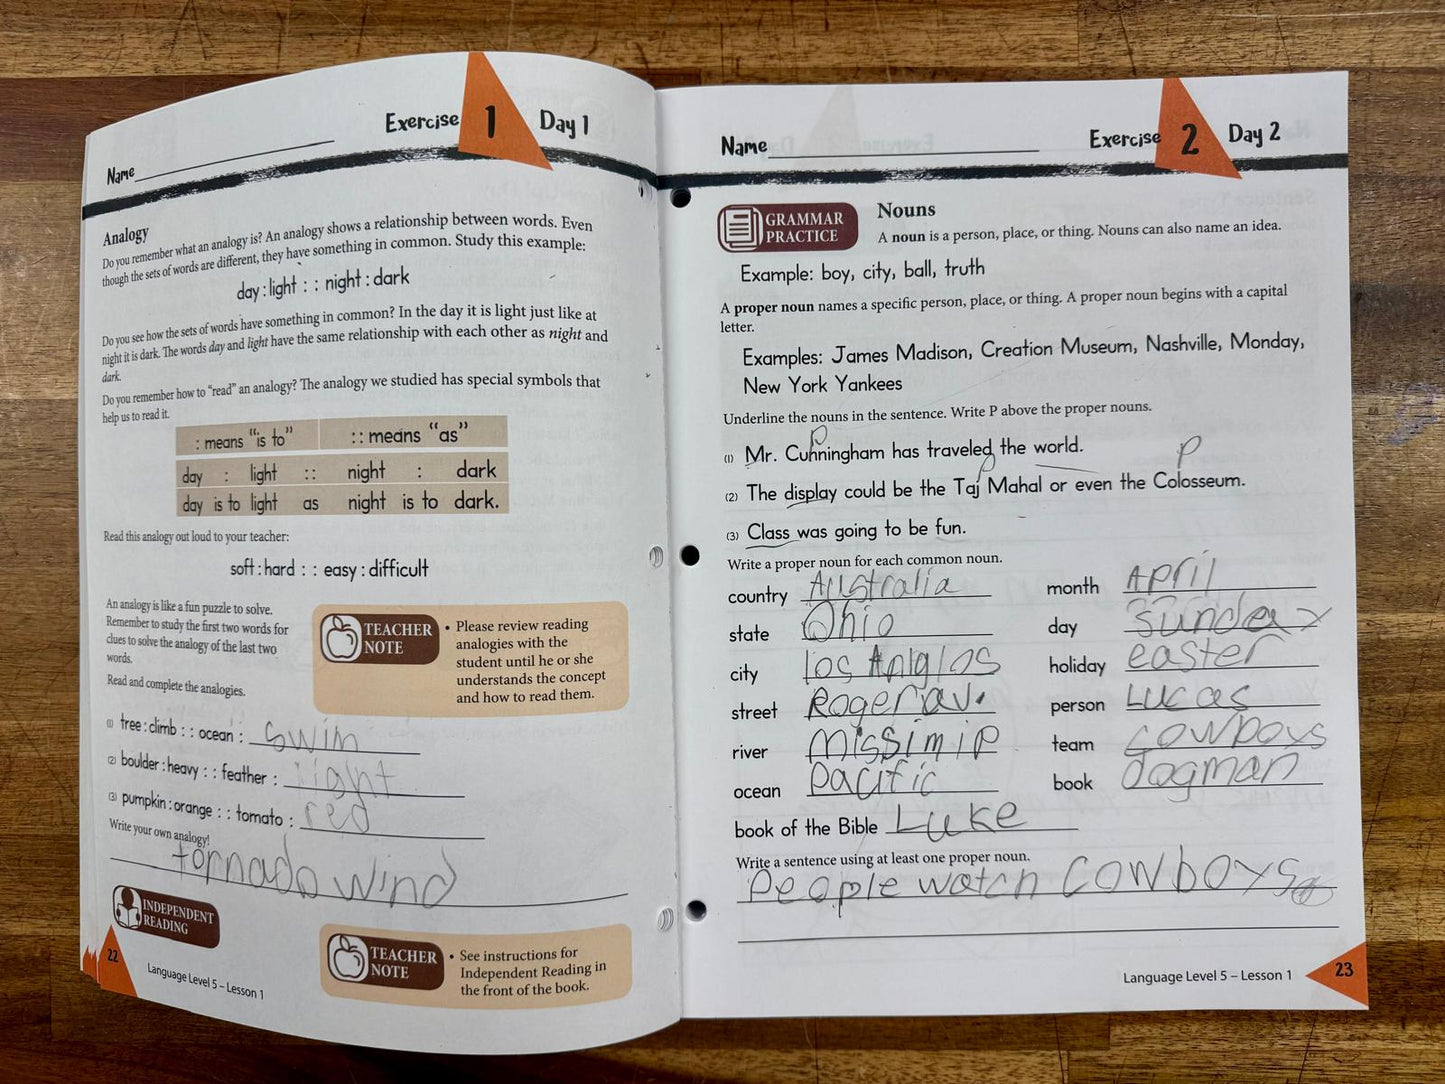 Exercise 1 Day 1
Name
Analogy
Do you remember what an analogy is? An analogy shows a relationship between words. Even
though the sets of words are different, they have something in common. Study this example:
day : light : : night : dark
Do you see how the sets of words have something in common? In the day it is light just like at
night it is dark. The words day and light have the same relationship with each other as night and
dark.
Do you remember how to "read" an analogy? The analogy we studied has special symbols that
help us to read it.
: means "is to" : : means "as"
day : light : : night : dark
day is to light as night is to dark.
Read this analogy out loud to your teacher:
soft : hard : : easy : difficult
An analogy is like a fun puzzle to solve.
Remember to study the first two words for
clues to solve the analogy of the last two
words.
Read and complete the analogies.
TEACHER
NOTE
• Please review reading
analogies with the
student until he or she
understands the concept
and how to read them.
(1) tree : climb : : ocean : swim
(2) boulder : heavy : : feather : light
(3) pumpkin : orange : : tomato : red
Write your own analogy!
tornado wind
INDEPENDENT
READING
TEACHER
NOTE
• See instructions for
Independent Reading in
the front of the book.
22
Language Level 5 – Lesson 1
Name Exercise 2 Day 2
GRAMMAR
PRACTICE
Nouns
A noun is a person, place, or thing. Nouns can also name an idea.
Example: boy, city, ball, truth
A proper noun names a specific person, place, or thing. A proper noun begins with a capital
letter.
Examples: James Madison, Creation Museum, Nashville, Monday,
New York Yankees
Underline the nouns in the sentence. Write P above the proper nouns.
P
(1) Mr. Cunningham has traveled the world.
P P
(2) The display could be the Taj Mahal or even the Colosseum.
(3) Class was going to be fun.
Write a proper noun for each common noun.
country Australia month April
state Ohio day sunday
city los Anlglos holiday easter
street Roger av. person Lucas
river missimip team cowboys
ocean pacific book dogman
book of the Bible Luke
Write a sentence using at least one proper noun.
People watch cowboys.
Language Level 5 – Lesson 1
23